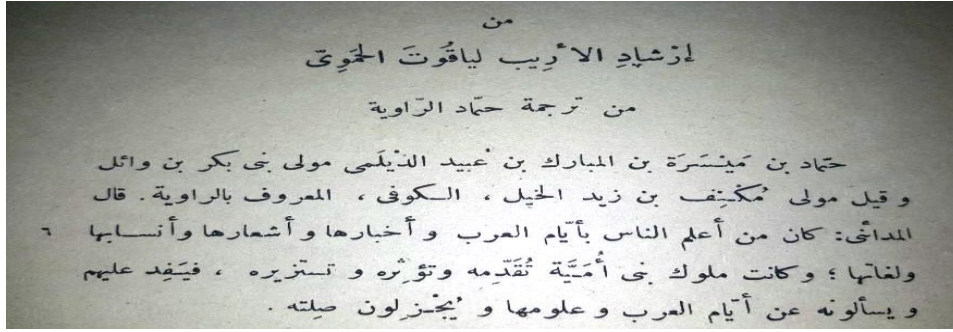 من
إِرْشادِ الأَرِيب لياقُوتَ الحَمَوِىّ
من ترجمة حمّاد الرّاوية
حمّاد بن مَيْسَرَة بن المبارك بن عبيد الدَّيْلَمى مولى بنى بكر بن وائل
و قيل مولى مُكْنِف بن زيد الخيل ، الكوفى ، المعروف بالراوية . قال
المدائنى: كان من أعلم الناس بأيّام العرب و أخبارها و أشعارها وأنسابها ٦
ولغاتها ؛ و كانت ملوك بنى أُمَيَّة تُقَدِّمه وتؤثِره و تستزيره ، فيَفِد عليهم
و يسألونه عن أيّام العرب و علومها و يُجْزِلون صِلته .